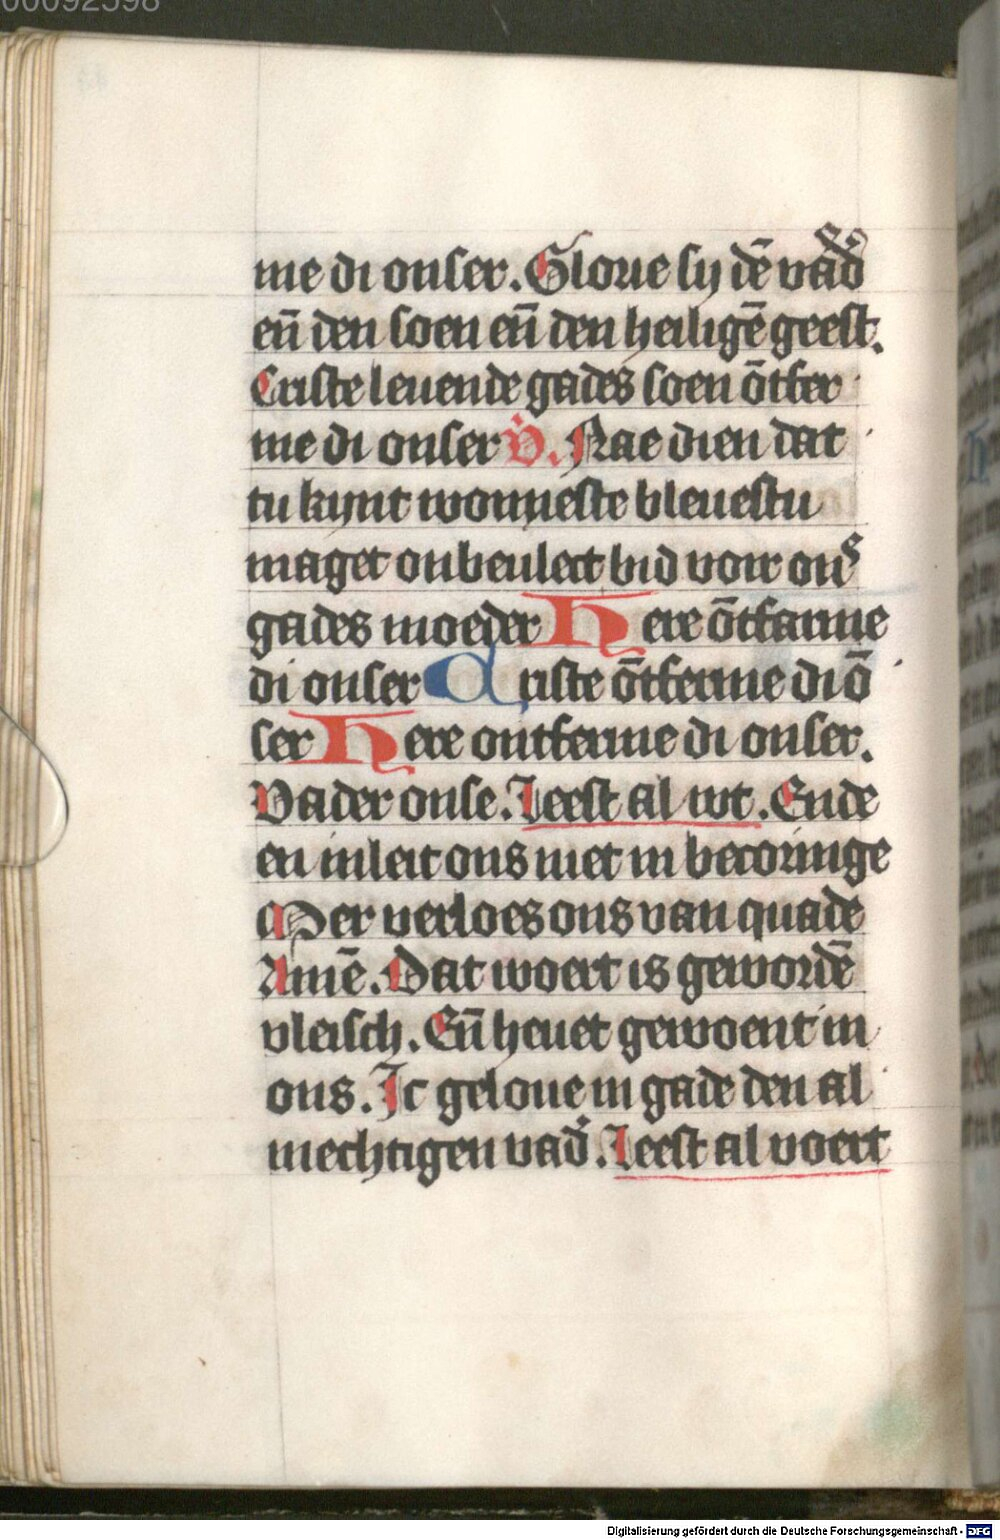 00092598
me di onser. Glorie sy dē vad̄
en̄ den soen en̄ den heiligē geest.
Criste leuende gades soen ōtfer
me di onser V. Nae dien dat
tu kynt wonneste bleuestu
maget onbeulect bid voir ons
gades moeder Here ōtfarme
di onser Criste ōtferme di ō
ser Here ontferme di onser.
Vader onse. Leest al wt. Ende
en inleit ons niet in becoringe
Mer verloes ons van quade
Amē. Dat woert is gewordē
vleisch. En̄ heuet gewoent in
ons. Ic geloue in gade den al
mechtigen vad̄. Leest al voert
Digitalisierung gefördert durch die Deutsche Forschungsgemeinschaft - DFG